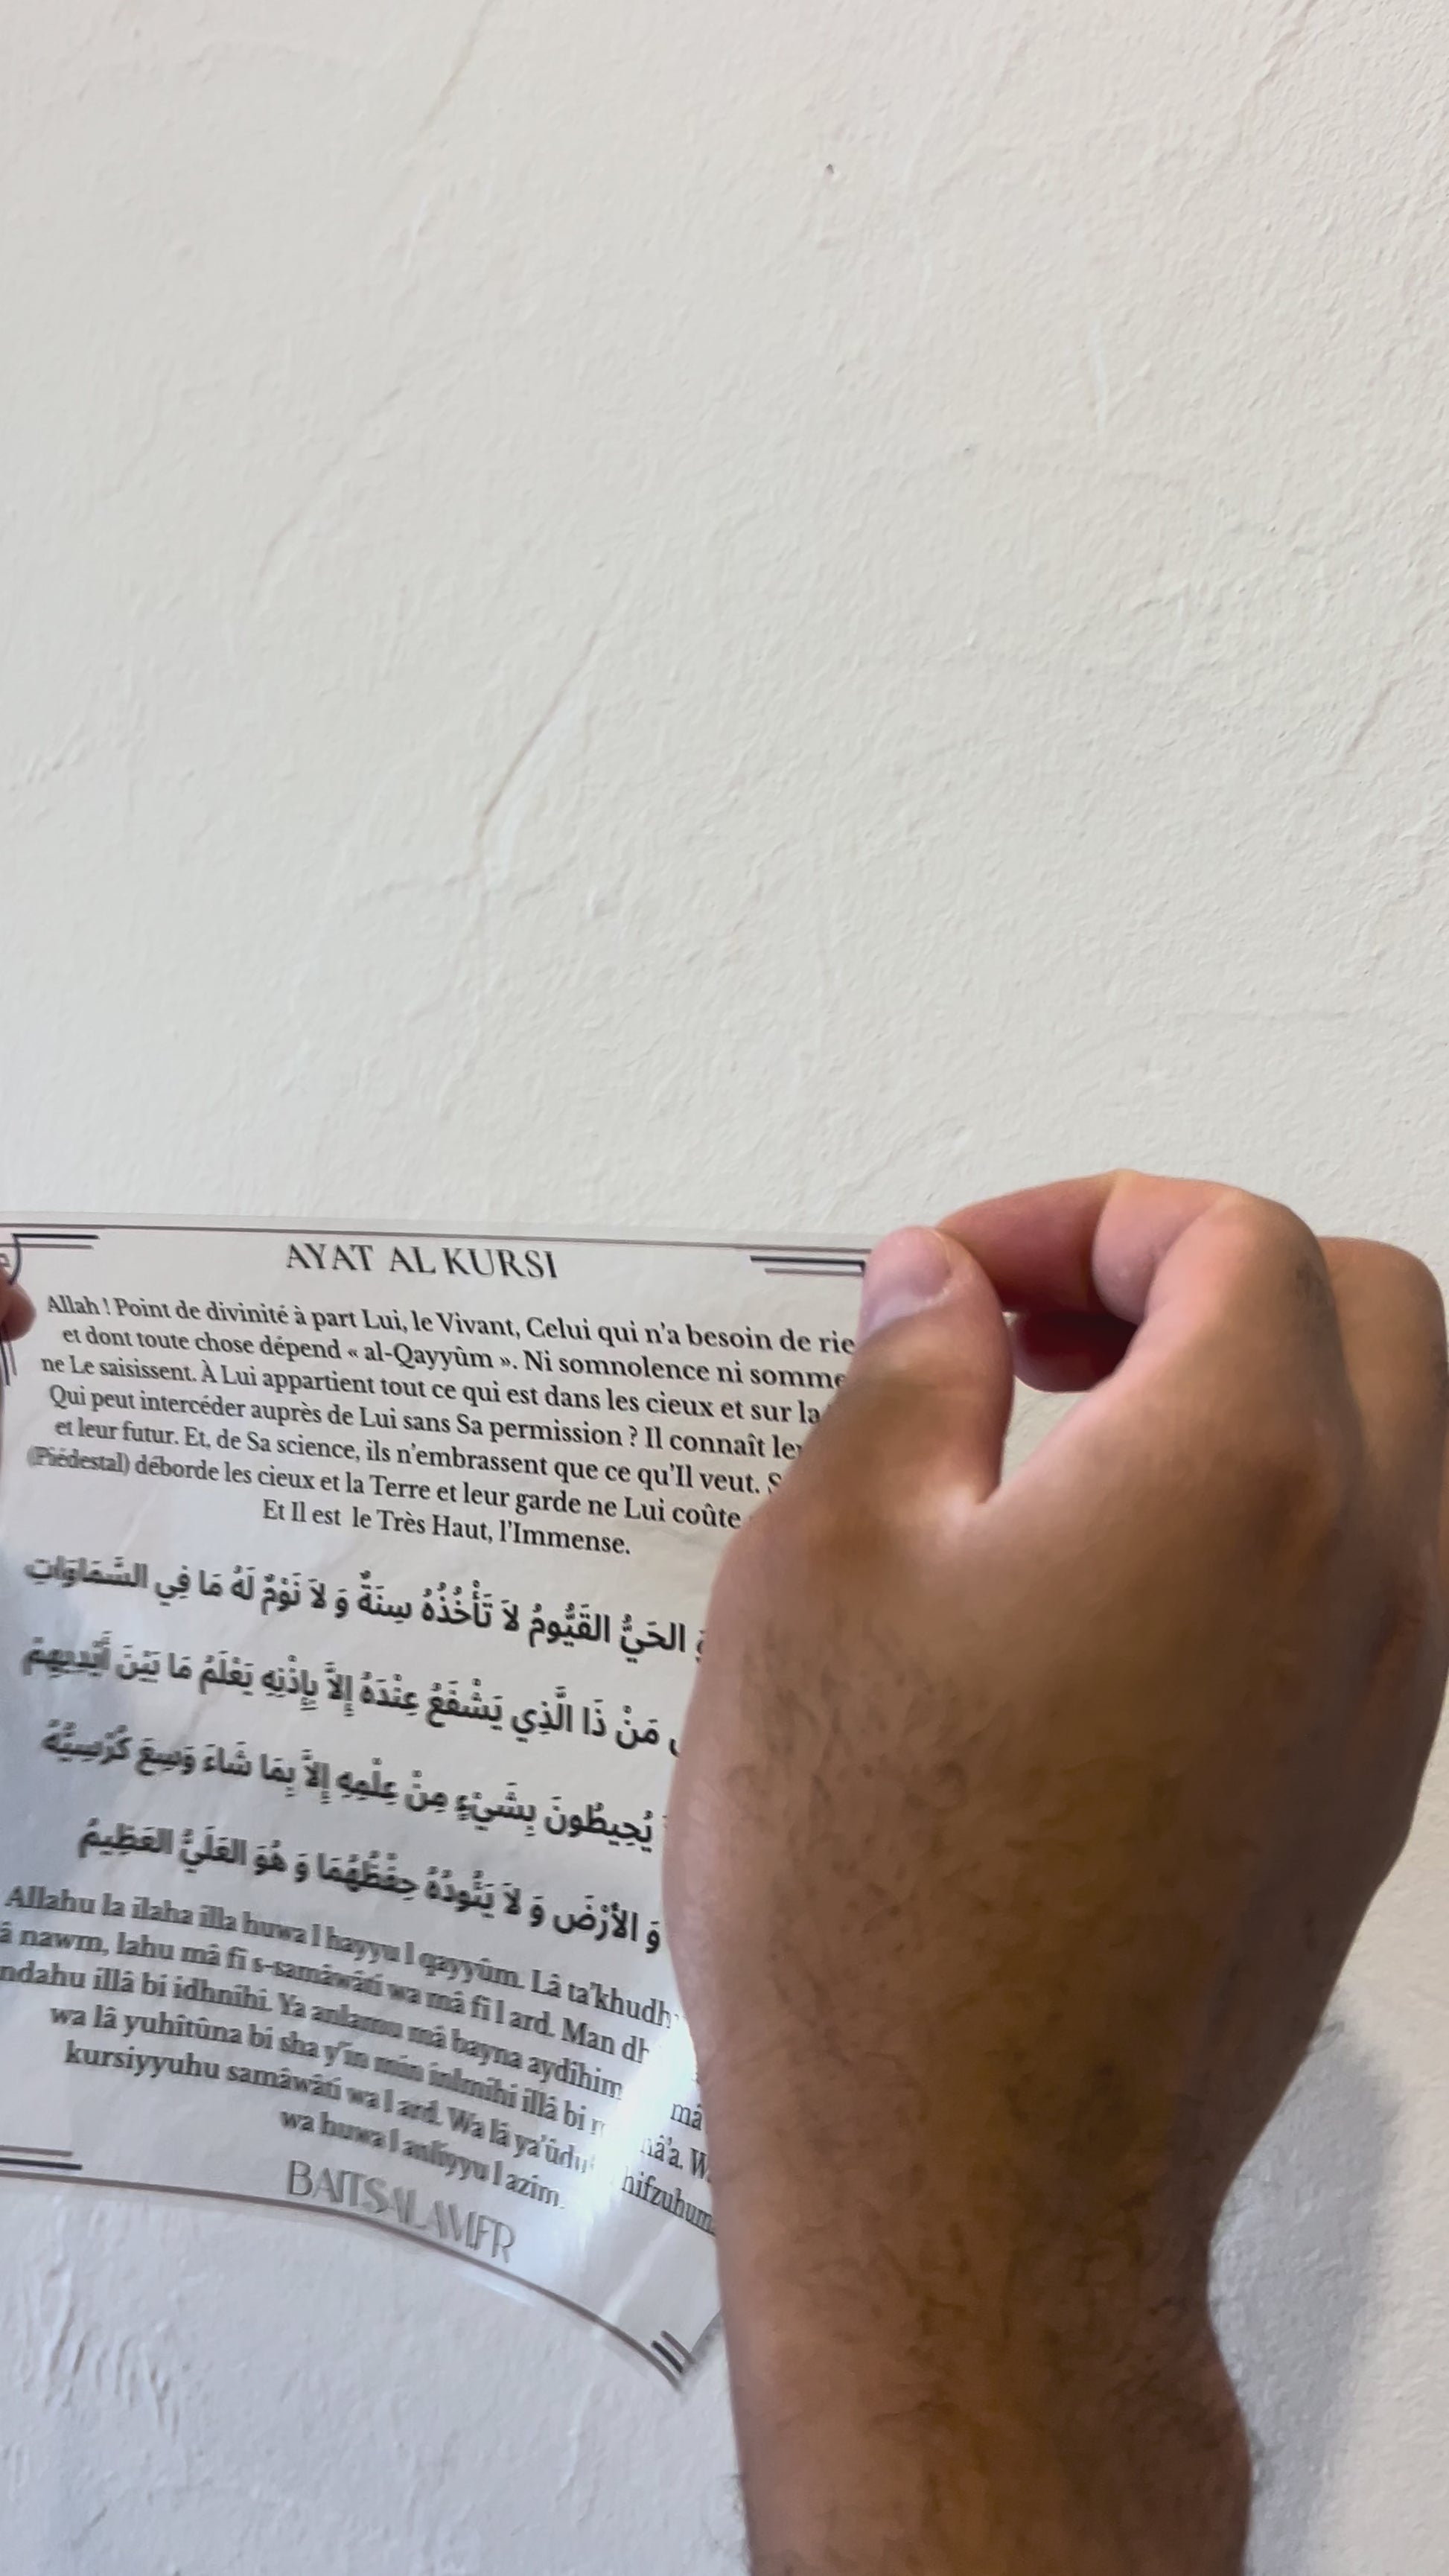 AYAT AL KURSI
Allah ! Point de divinité à part Lui, le Vivant, Celui qui n'a besoin de rie
et dont toute chose dépend « al-Qayyûm ». Ni somnolence ni somme
ne Le saisissent. À Lui appartient tout ce qui est dans les cieux et sur la
Qui peut intercéder auprès de Lui sans Sa permission ? Il connaît
et leur futur. Et, de Sa science, ils n'embrassent que ce qu'Il veut. S
(Piédestal) déborde les cieux et la Terre et leur garde ne Lui coûte
Et Il est le Très Haut, l'Immense.
الحَيُّ القَيُّومُ لاَ تَأْخُذُهُ سِنَةٌ وَ لاَ نَوْمٌ لَهُ مَا فِي السَّمَاوَاتِ
مَنْ ذَا الَّذِي يَشْفَعُ عِنْدَهُ إِلاَّ بِإِذْنِهِ يَعْلَمُ مَا بَيْنَ أَيْدِيهِمْ
يُحِيطُونَ بِشَيْءٍ مِنْ عِلْمِهِ إِلاَّ بِمَا شَاءَ وَسِعَ كُرْسِيُّهُ
وَ الأَرْضَ وَ لاَ يَئُودُهُ حِفْظُهُمَا وَ هُوَ العَلَيُّ العَظِيمُ
Allahu la ilaha illa huwa l hayyu l qayyûm. Lâ ta'khudh
â nawm, lahu mâ fi s-samâwâti wa mâ fi l ard. Man dh
ndahu illâ bi idhnihi. Ya anlamu mâ bayna aydîhim mâ
wa lâ yuhîtûna bi sha y'in min inlmihi illâ bi nâ'a. W
kursiyyuhu samâwâti wa l ard. Wa lâ ya'ûdu hifzuhum
wa huwa l anliyyu l azim.
BAITSALAMFR